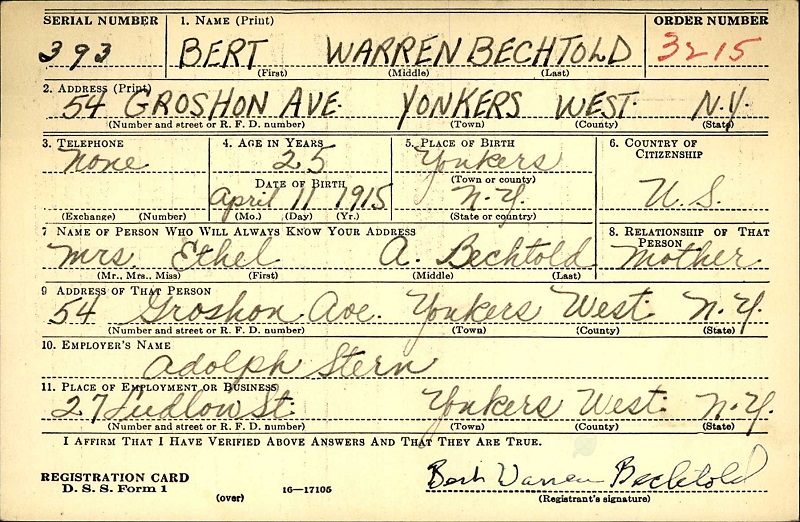 SERIAL NUMBER 1. NAME (Print) ORDER NUMBER
393 BERT WARREN BECHTOLD 3215
(First) (Middle) (Last)
2. ADDRESS (Print)
54 GROSHON AVE. YONKERS WEST. N.Y.
(Number and street or R. F. D. number) (Town) (County) (State)
3. TELEPHONE 4. AGE IN YEARS 5. PLACE OF BIRTH 6. COUNTRY OF CITIZENSHIP
None 25 Yonkers
(Town or county)
DATE OF BIRTH
April 11 1915 N.Y. U.S.
(Exchange) (Number) (Mo.) (Day) (Yr.) (State or country)
7 NAME OF PERSON WHO WILL ALWAYS KNOW YOUR ADDRESS 8. RELATIONSHIP OF THAT PERSON
Mrs. Ethel A. Bechtold Mother
(Mr., Mrs., Miss) (First) (Middle) (Last)
9 ADDRESS OF THAT PERSON
54 Groshon Ave. Yonkers West. N.Y.
(Number and street or R. F. D. number) (Town) (County) (State)
10. EMPLOYER'S NAME
Adolph Stern
11. PLACE OF EMPLOYMENT OR BUSINESS
27 Ludlow St. Yonkers West. N.Y.
(Number and street or R. F. D. number) (Town) (County) (State)
I AFFIRM THAT I HAVE VERIFIED ABOVE ANSWERS AND THAT THEY ARE TRUE.
REGISTRATION CARD
D. S. S. Form 1 (over) 16—17105
Bert Warren Bechtold
(Registrant's signature)